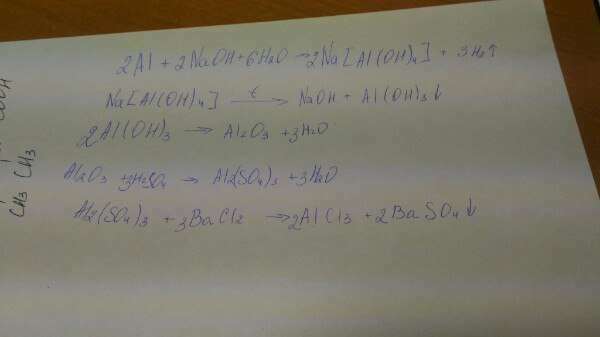 2Al + 2NaOH + 6H2O → 2Na[Al(OH)4] + 3H2↑
Na[Al(OH)4] t→ NaOH + Al(OH)3↓
2Al(OH)3 → Al2O3 + 3H2O
Al2O3 + 3H2SO4 → Al2(SO4)3 + 3H2O
Al2(SO4)3 + 3BaCl2 → 2AlCl3 + 2BaSO4↓
COOH
CH3 CH3